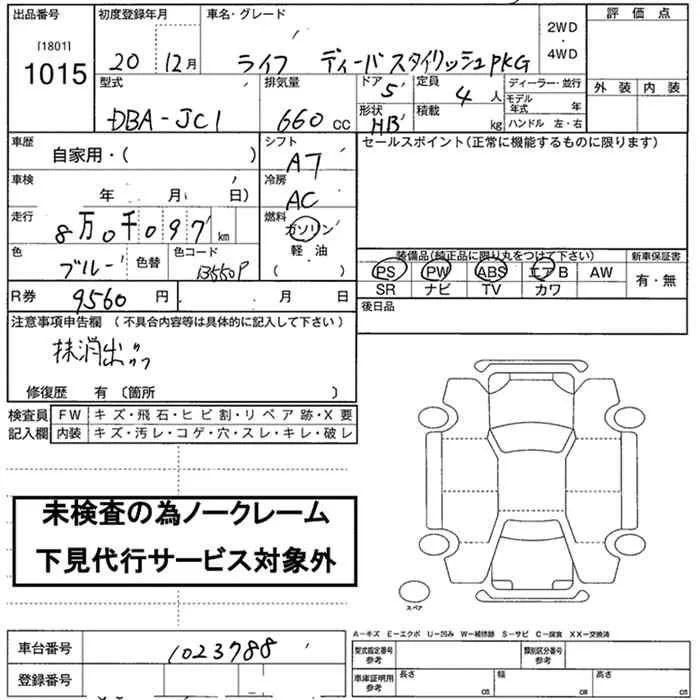 出品番号 初度登録年月 車名・グレード 2WD・4WD 評価点
[1801] 1015 20 12月 ライフ ディーバ スタイリッシュPKG
型式 排気量 ドア 5 定員 4人 ディーラー・並行 外装 内装
DBA-JC1 660cc 形状 HB 積載 kg モデル年式 年
ハンドル 左・右
車歴 自家用・( ) シフト AT セールスポイント(正常に機能するものに限ります)
車検 年 月( 日) 冷房 AC
走行 8万0千097km 燃料 ガソリン
軽・油
( )
色 ブルー 色替 色コード B550P
装備品(純正品に限り丸をつけて下さい) 新車保証書
PS PW ABS エアB AW 有・無
SR ナビ TV カワ
R券 9560円 月 日 後日品
注意事項申告欄 (不具合内容等は具体的に記入して下さい)
抹消出
修復歴 有 〔箇所 〕
検査員 FW キズ・飛石・ヒビ割・リペア跡・X要
記入欄 内装 キズ・汚レ・コゲ・穴・スレ・キレ・破レ
未検査の為ノークレーム
下見代行サービス対象外
スペア
A-キズ E-エクボ U-凹み W-補修跡 S-サビ C-腐食 XX-交換済
車台番号 1023788 型式指定番号 参考 類別区分番号 参考
登録番号 車庫証明用 参考 長さ cm 幅 cm 高さ cm